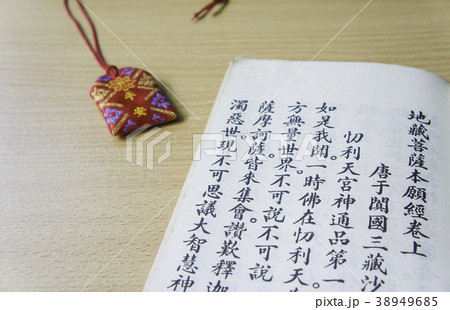 地藏菩薩本願經卷上
唐于闐國三藏沙
忉利天宮神通品第一
如是我聞。一時佛在忉利天
方無量世界不可說不可說
薩摩訶薩皆來集會讚歎釋迦
濁惡世。現不可思議大智慧神
PIXTA
pixta.jp - 38949685